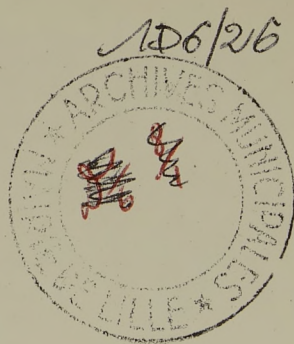 1D6/26
ARCHIVES MUNICIPALES
MAIRIE DE LILLE